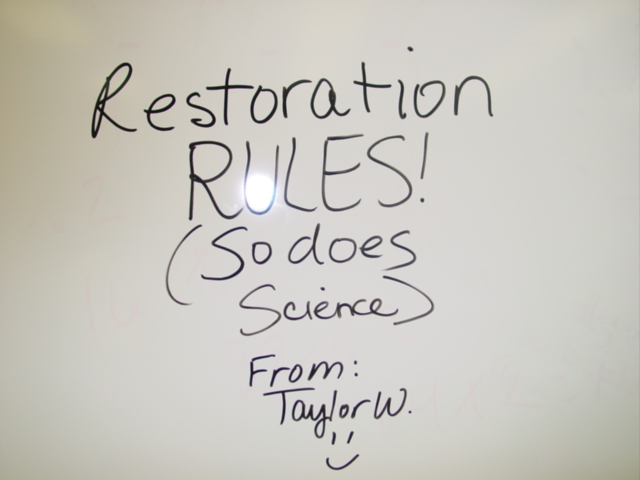 Restoration
RULES!
(So does
Science)
From:
Taylor W.